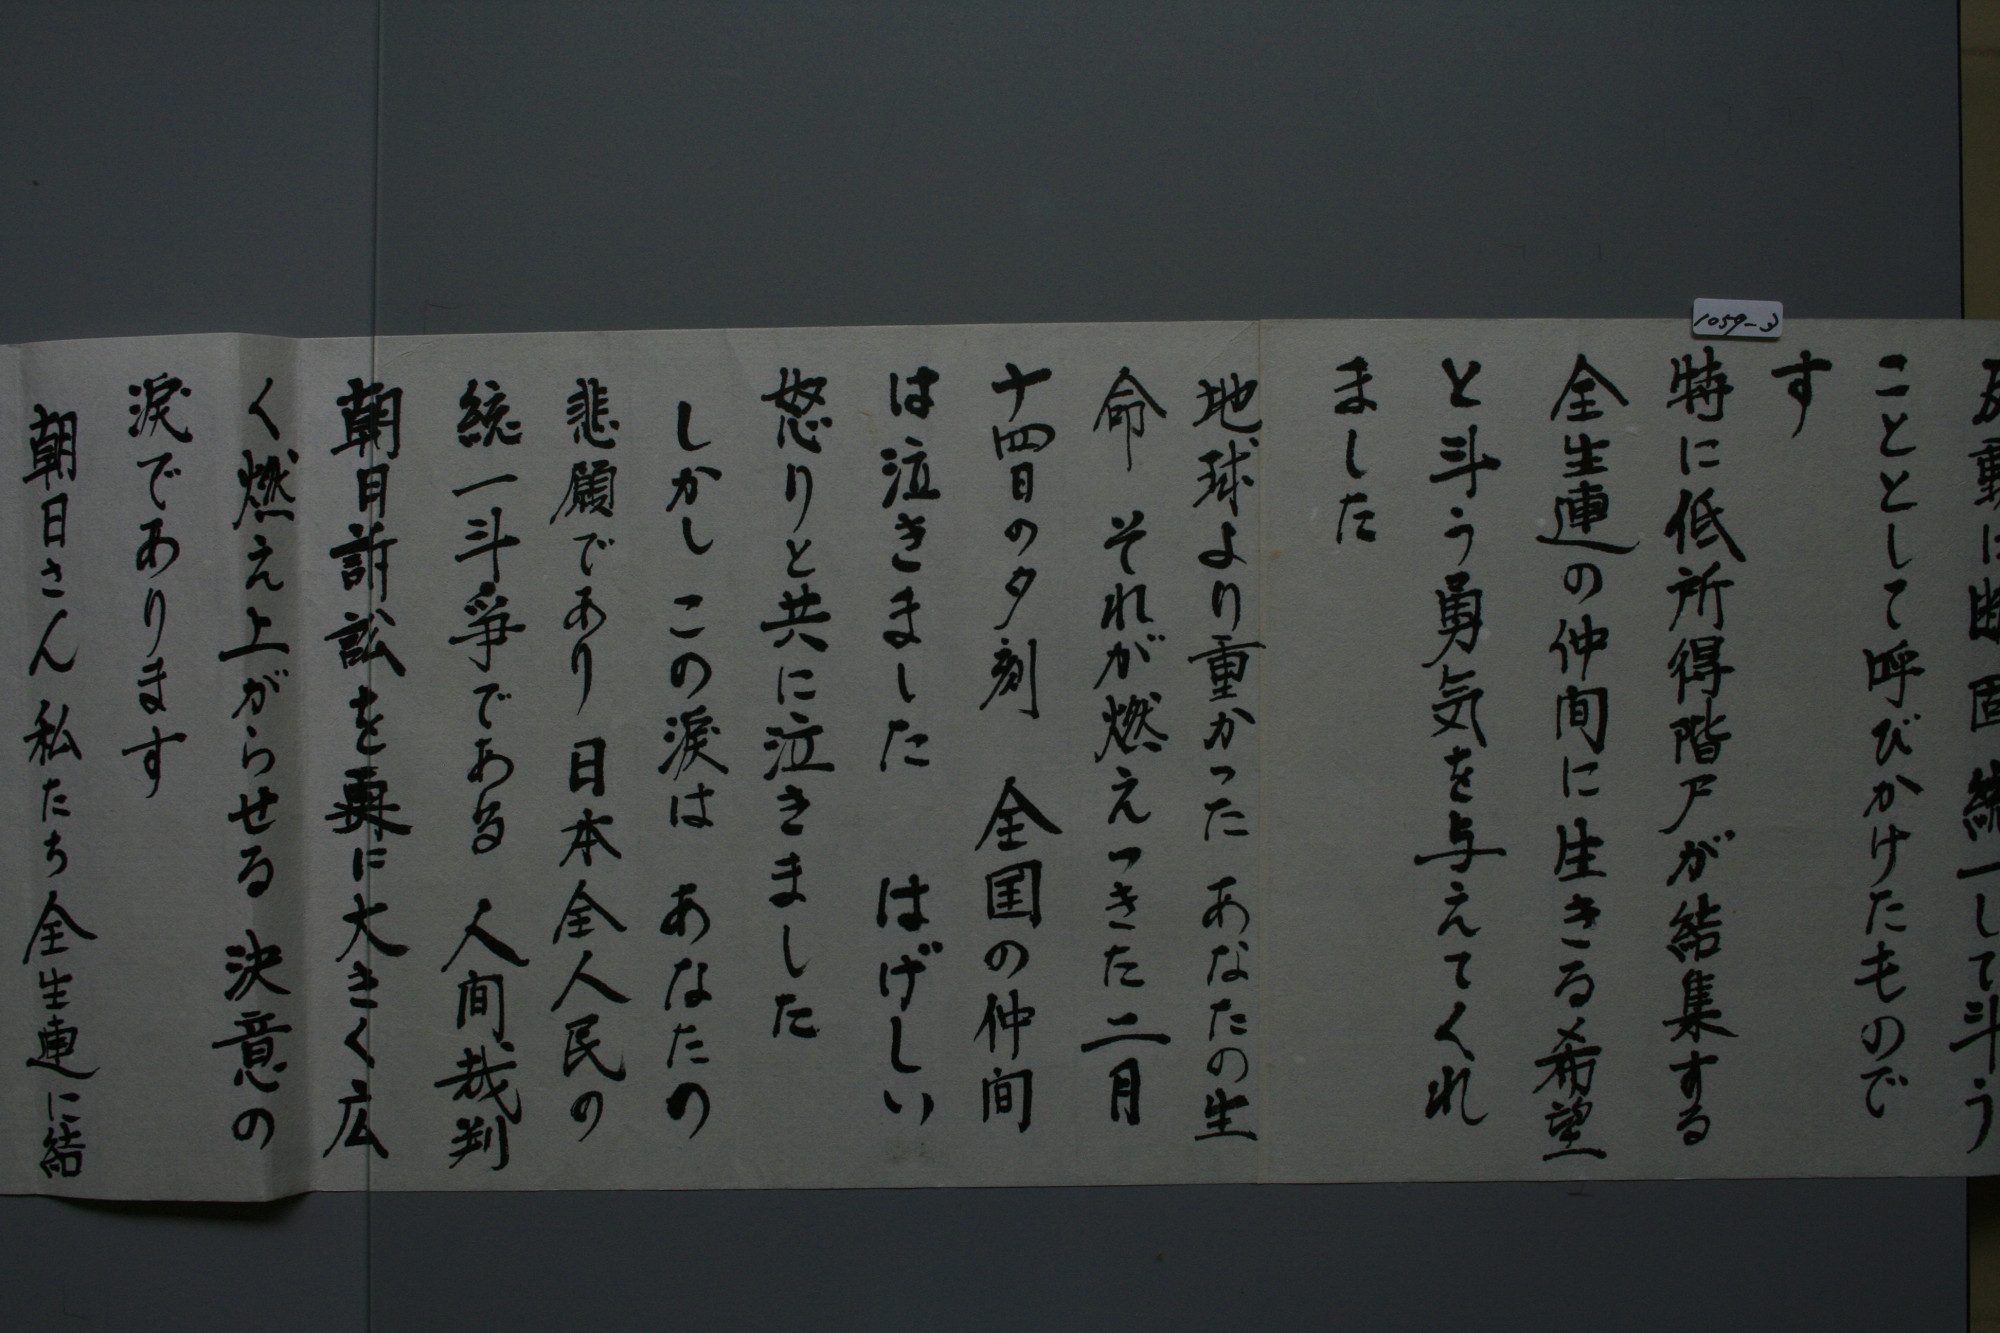 1059-3
反動に断固統一して斗う
こととして呼びかけたもので
す
特に低所得階戸が結集する
全生連の仲间に生きる希望
と斗う勇気を与えてくれ
ました
地球より重かった あなたの生
命 それが燃えつきた二月
十四日の夕刻 全国の仲间
は泣きました はげしい
怒りと共に泣きました
しかし この涙は あなたの
悲願であり 日本全人民の
統一斗争である 人间裁判
朝日訴訟を更に大きく広
く燃え上がらせる 決意の
涙であります
朝日さん 私たち全生連に結